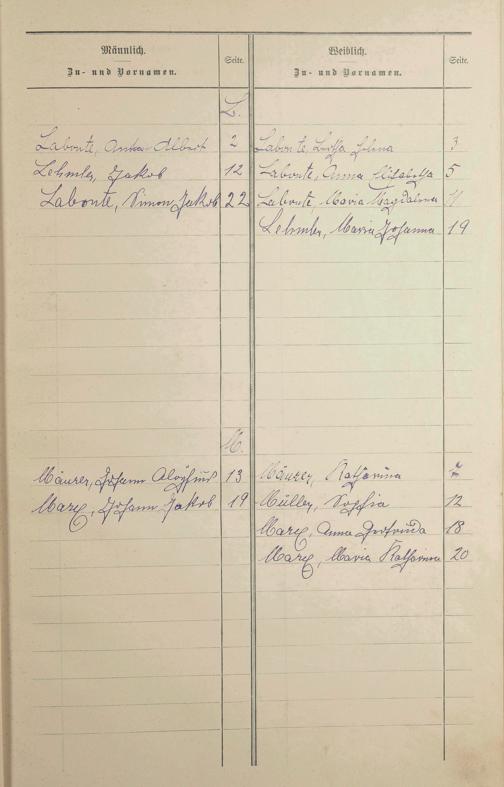 Männlich.
Zu- und Vornamen.
Seite.
Weiblich.
Zu- und Vornamen.
Seite.
L.
Labonte, Anton Albert 2
Labonte, Helena 3
Lehmler, Jakob 12
Labonte, Anna Elisabetha 5
Labonte, Simon Jakob 22
Labonte, Maria Magdalena
Lehmler, Maria Johanna 19
M.
Mäurer, Johann Aloysius 13
Mäurer, Katharina
Marx, Johann Jakob 19
Müller, Sophia 12
Marx, Anna Gertruda 18
Marx, Maria Katharina 20